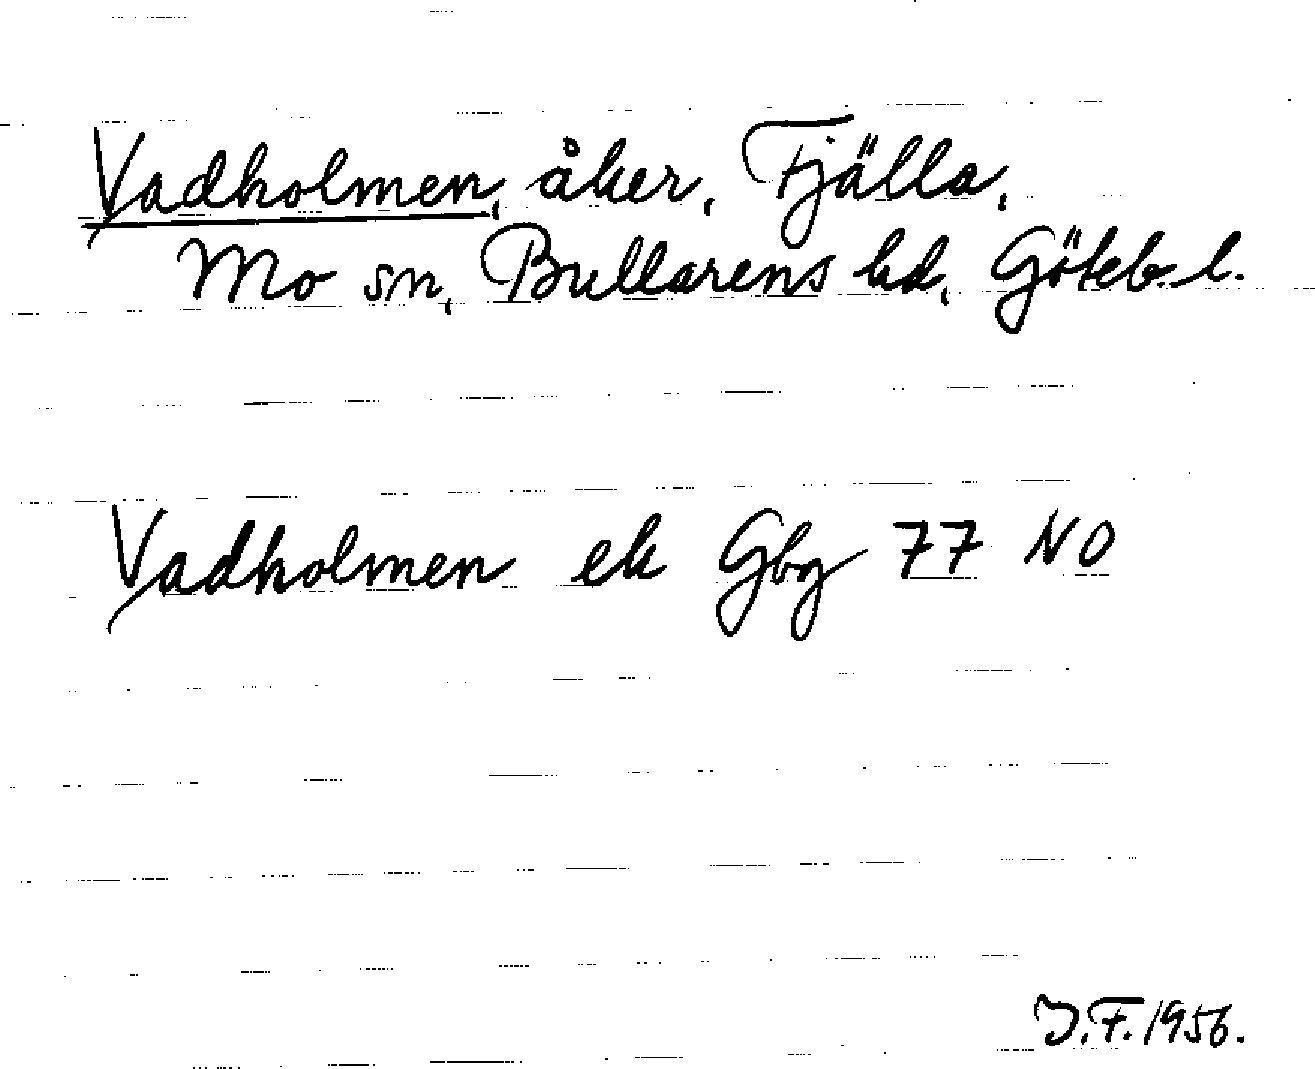 Vadholmen, åker, Fjälla,
Mo sn, Bullarens hd, Göteb. l.
Vadholmen ek Gbg 77 NO
J.F. 1956.